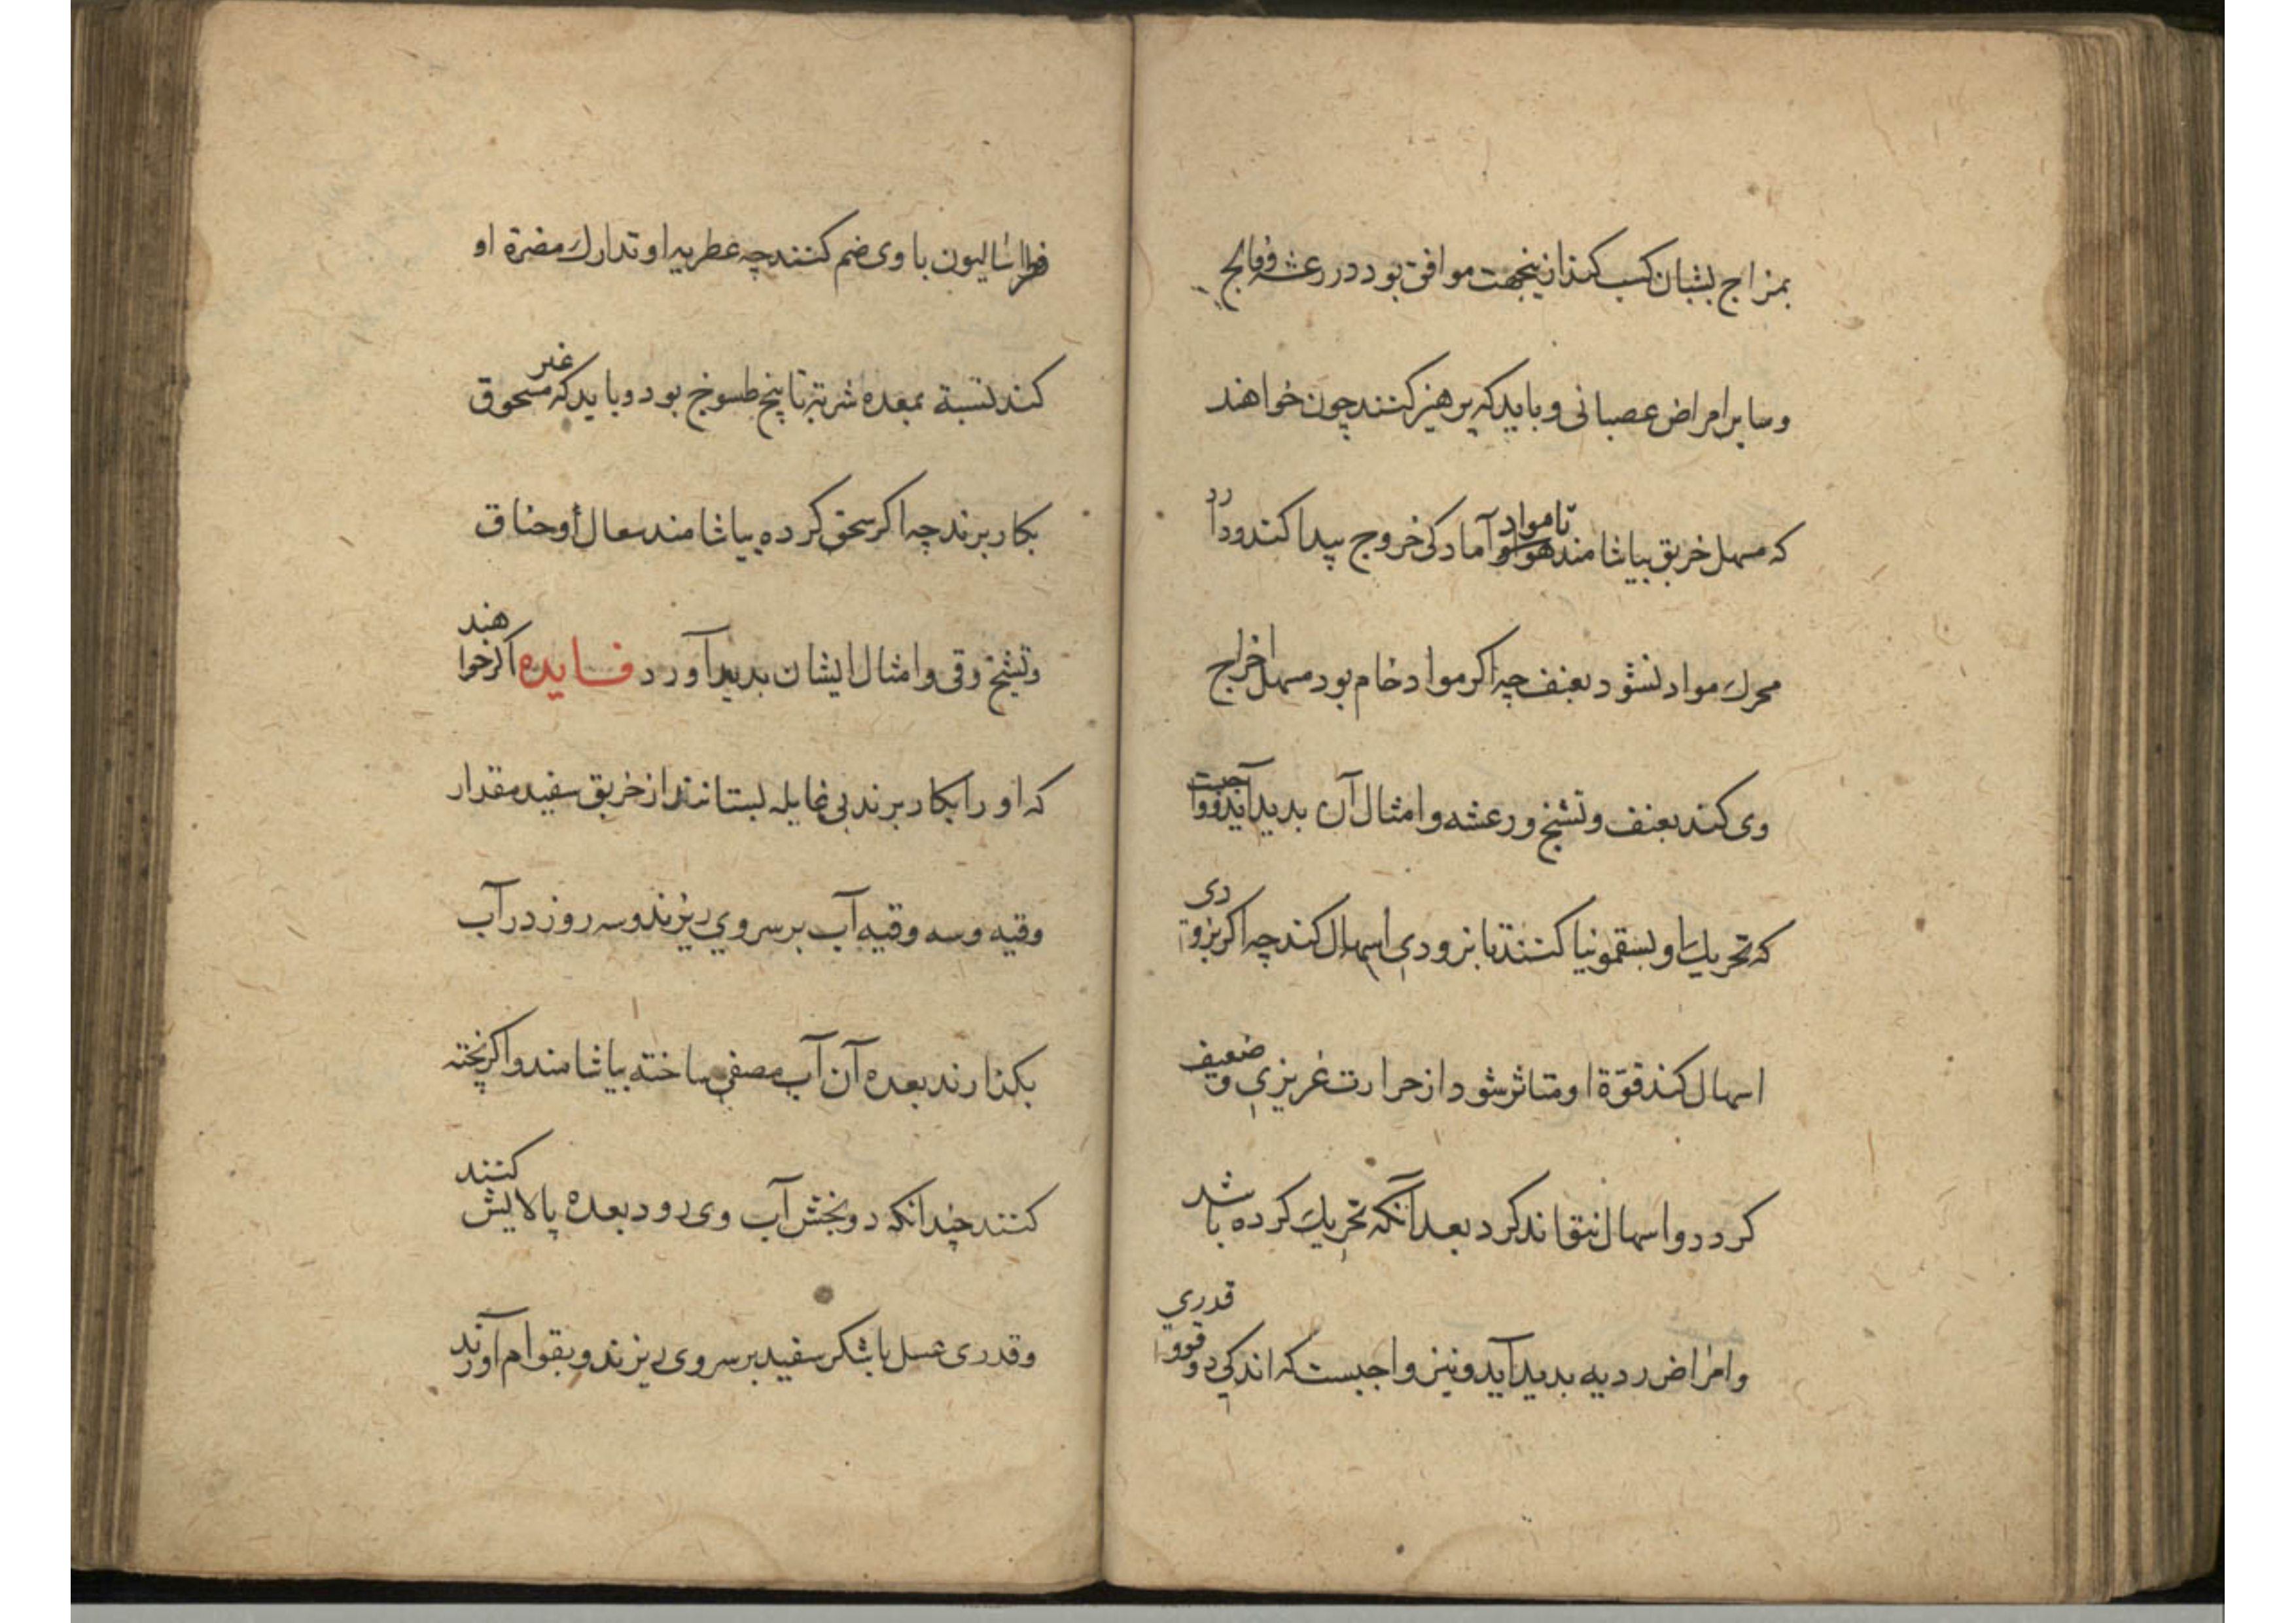 بمزاج بشبان کسب کند ازینجهت موافق بود در رعشه و فالج
و سایر امراض عصبانی و باید که پرهیز کنند چون خواهند
که مسهل خربق بیاشامند تا مواد آمادکی خروج پیدا کند و دارد
محرك مواد نشود بعنف چه اکر مواد خام بود مسهل اخراج
وی کند بعنف و تشنج و رعشه و امثال آن بدید آید و واجبت
که تحریك او بسقمونیا کنند تا بزودی اسهال کند چه اکر بزودی
اسهال کند قوّة او متاثر شود از حرارت غریزی و ضعیف
کردد و اسهال نتواند کرد بعد آنکه تحریك کرده باشد
و امراض ردیه بدید آید و نیز واجبست که اندکی و قدری
فطراسالیون با وی ضم کنند چه عطریه او تدارك مضرة او
کند نسبة بمعده شربتی تا پنج طسوخ بود و باید که غیر مسحوق
بکار برند چه اکر سحق کرده بیاشامند سعال و خناق
و تشنج و قی و امثال ایشان بدید آورد فایده اکر خواهند
که او را بکار برند بی غایله بستانند از خربق سفید مقدار
وقیه و سه وقیه آب بر سر وی ریزند و سه روز در آب
بکذارند بعده آن آب مصفی ساخته بیاشامند و اکر پخته
کنند چندانکه دو بخش آب وی رود بعده پالایش کنند
و قدری عسل یا شکر سفید بر سر وی ریزند و بقوام آورند